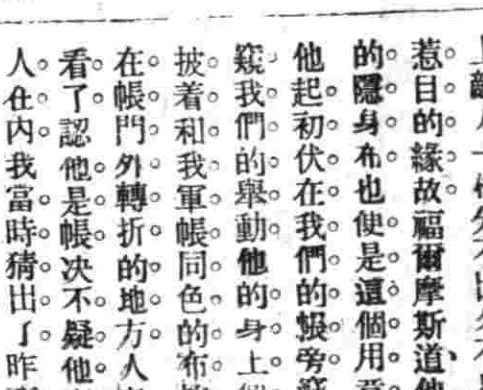 惹目的緣故福爾摩斯道、他
的隱身布也便是這個用意
他起初伏在我們的帳旁竊
窺我們的舉動他的身上
披着和我軍帳同色的布
在帳門外轉折的地方人
看了認他是帳決不疑他
人在內我當時猜出了昨